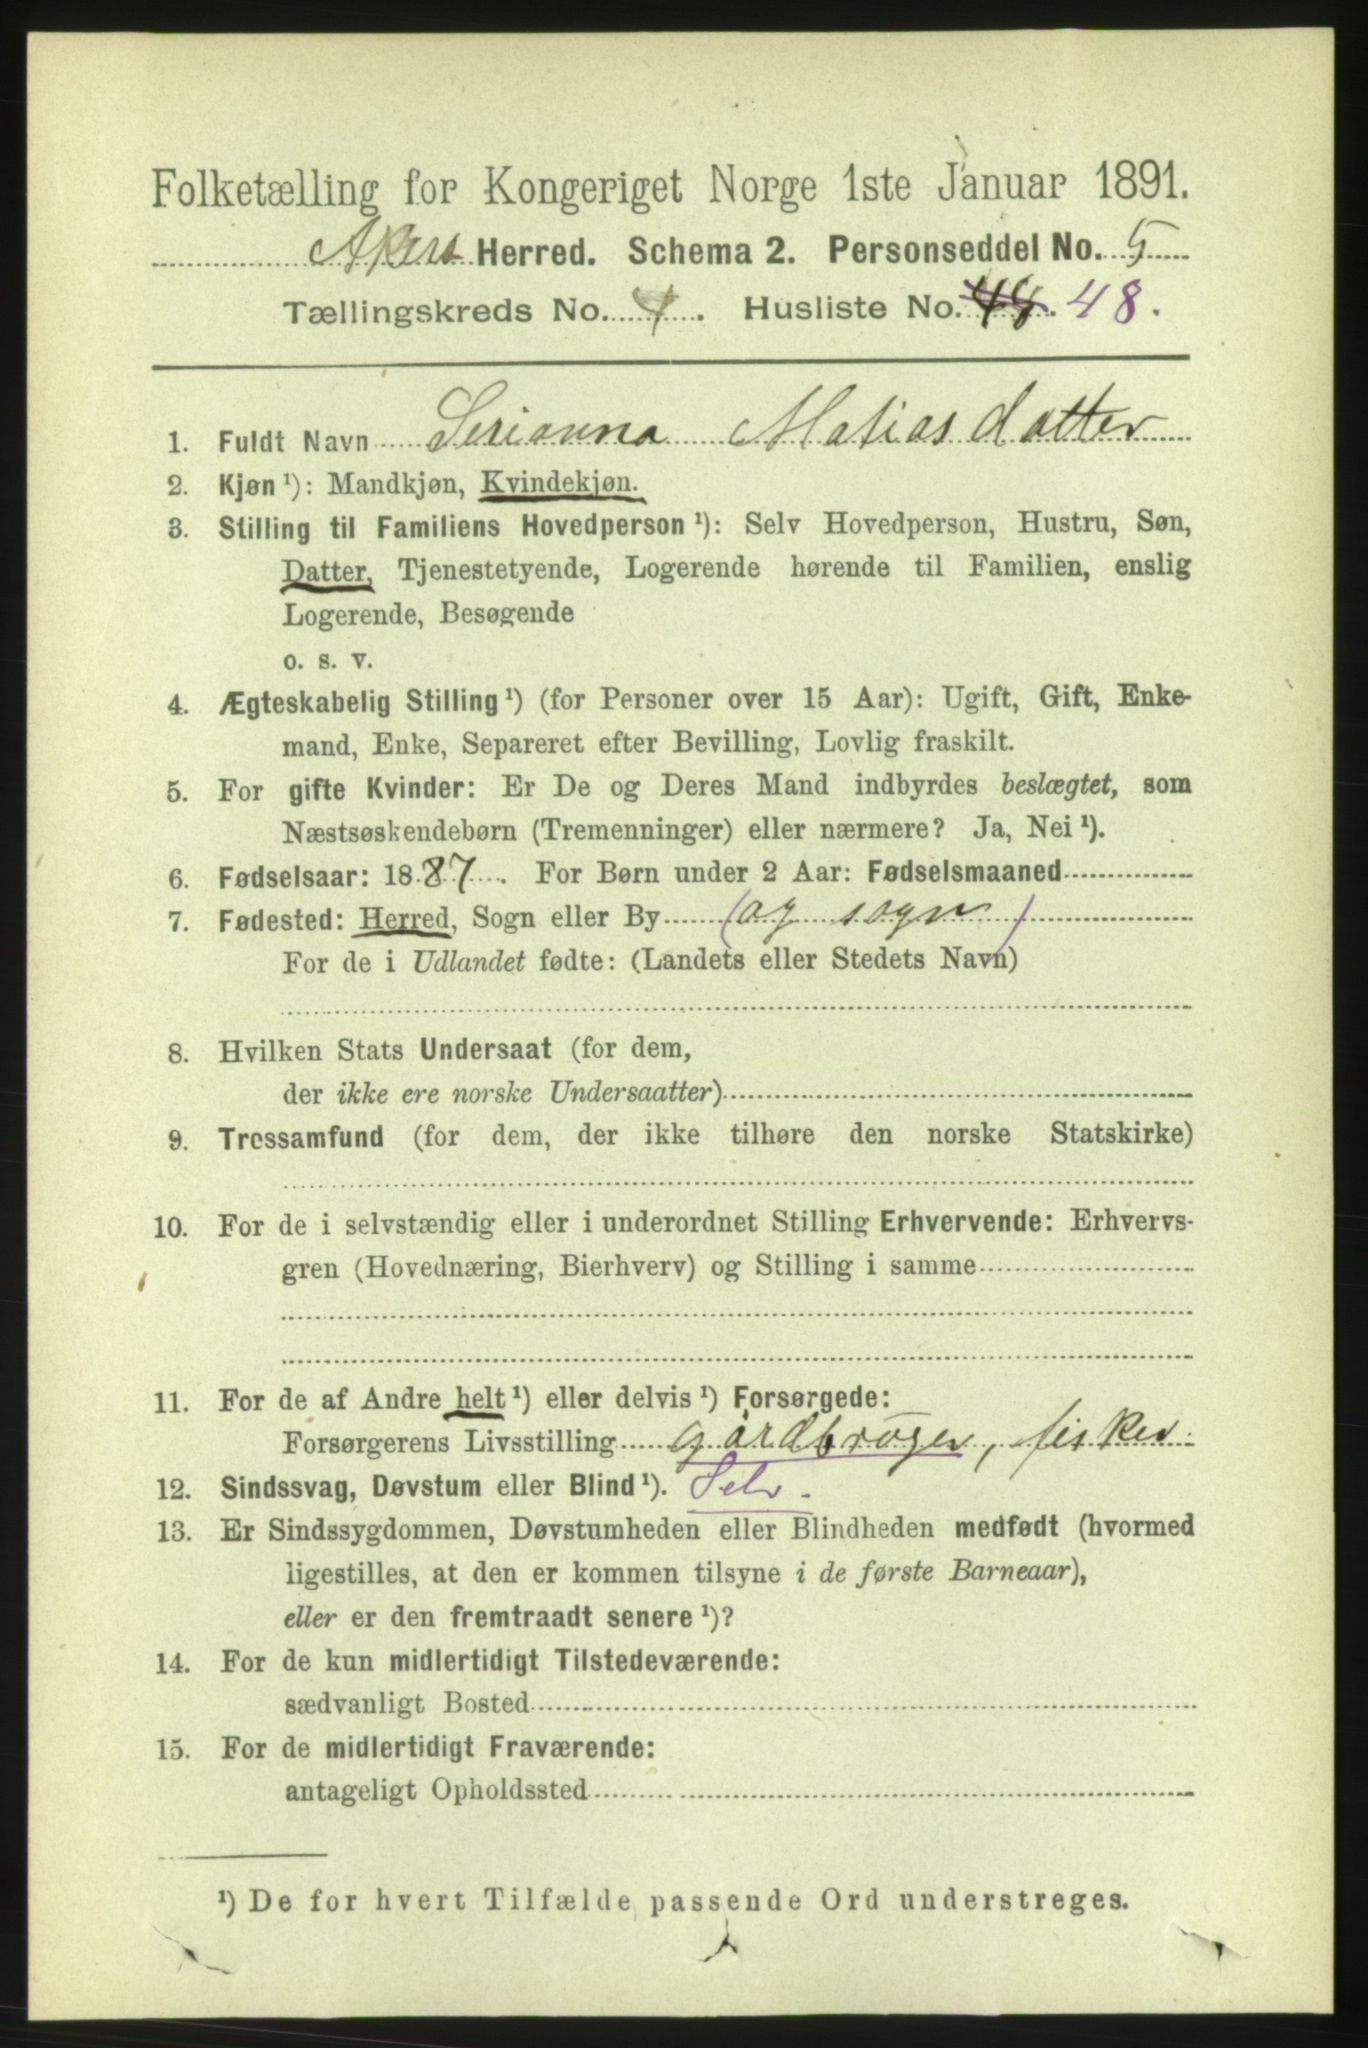 Folketælling for Kongeriget Norge 1ste Januar 1891.
Herred. Schema 2. Personseddel No. 5
Tællingskreds No. 4. Husliste No. 48.
1. Fuldt Navn Serianna Matias datter
2. Kjøn ¹): Mandkjøn, Kvindekjøn.
3. Stilling til Familiens Hovedperson ¹): Selv Hovedperson, Hustru, Søn,
Datter, Tjenestetyende, Logerende hørende til Familien, enslig
Logerende, Besøgende
o. s. v.
4. Ægteskabelig Stilling ¹) (for Personer over 15 Aar): Ugift, Gift, Enke-
mand, Enke, Separeret efter Bevilling, Lovlig fraskilt.
5. For gifte Kvinder: Er De og Deres Mand indbyrdes beslægtet, som
Næstsøskendebørn (Tremenninger) eller nærmere? Ja, Nei ¹).
6. Fødselsaar: 1887. For Børn under 2 Aar: Fødselsmaaned
7. Fødested: Herred, Sogn eller By (og sogn)
For de i Udlandet fødte: (Landets eller Stedets Navn)
8. Hvilken Stats Undersaat (for dem,
der ikke ere norske Undersaatter)
9. Trossamfund (for dem, der ikke tilhøre den norske Statskirke)
10. For de i selvstændig eller i underordnet Stilling Erhvervende: Erhvervs-
gren (Hovednæring, Bierhverv) og Stilling i samme
11. For de af Andre helt ¹) eller delvis ¹) Forsørgede:
Forsørgerens Livsstilling gårdbrüger, fisker
12. Sindssvag, Døvstum eller Blind ¹). Selv.
13. Er Sindssygdommen, Døvstumheden eller Blindheden medfødt (hvormed
ligestilles, at den er kommen tilsyne i de første Barneaar),
eller er den fremtraadt senere ¹)?
14. For de kun midlertidigt Tilstedeværende:
sædvanligt Bosted
15. For de midlertidigt Fraværende:
antageligt Opholdssted
¹) De for hvert Tilfælde passende Ord understreges.